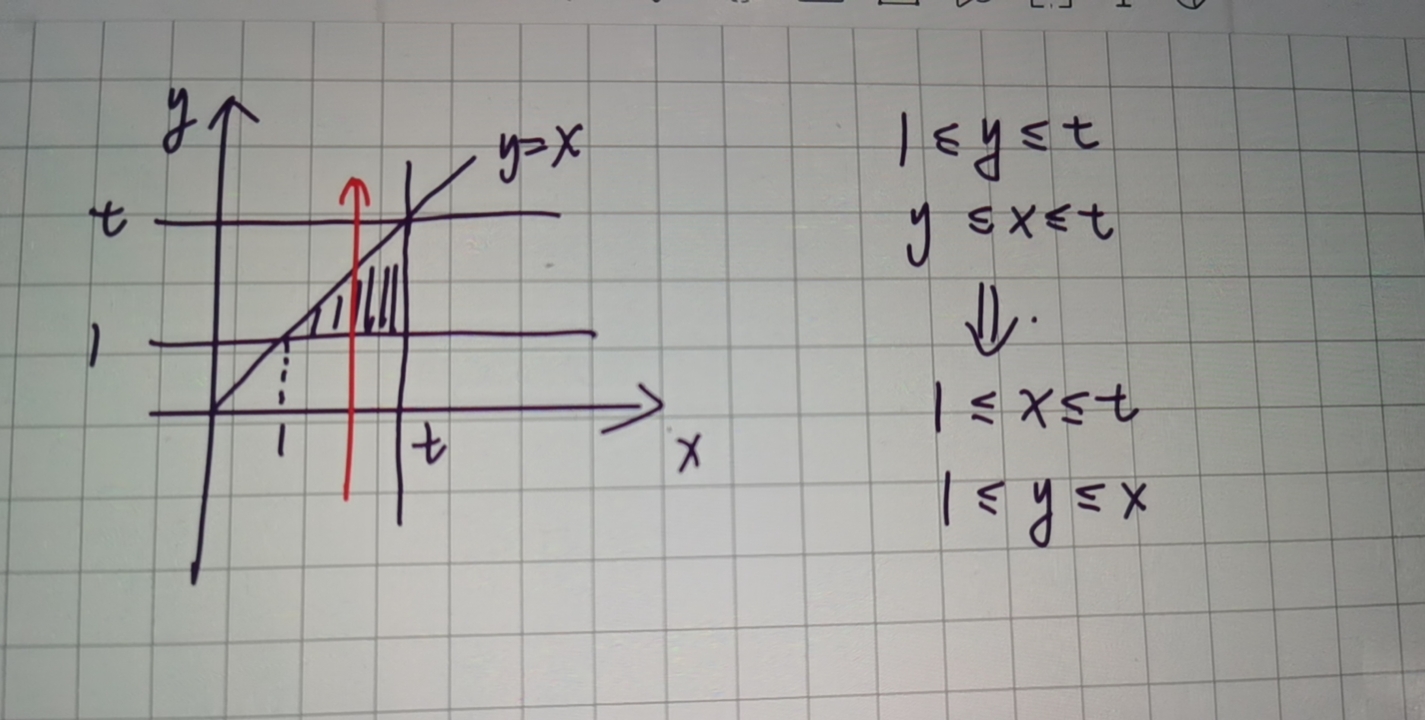 y
y=x
t
1
1
t
x
1 ≤ y ≤ t
y ≤ x ≤ t
⇓.
1 ≤ x ≤ t
1 ≤ y ≤ x